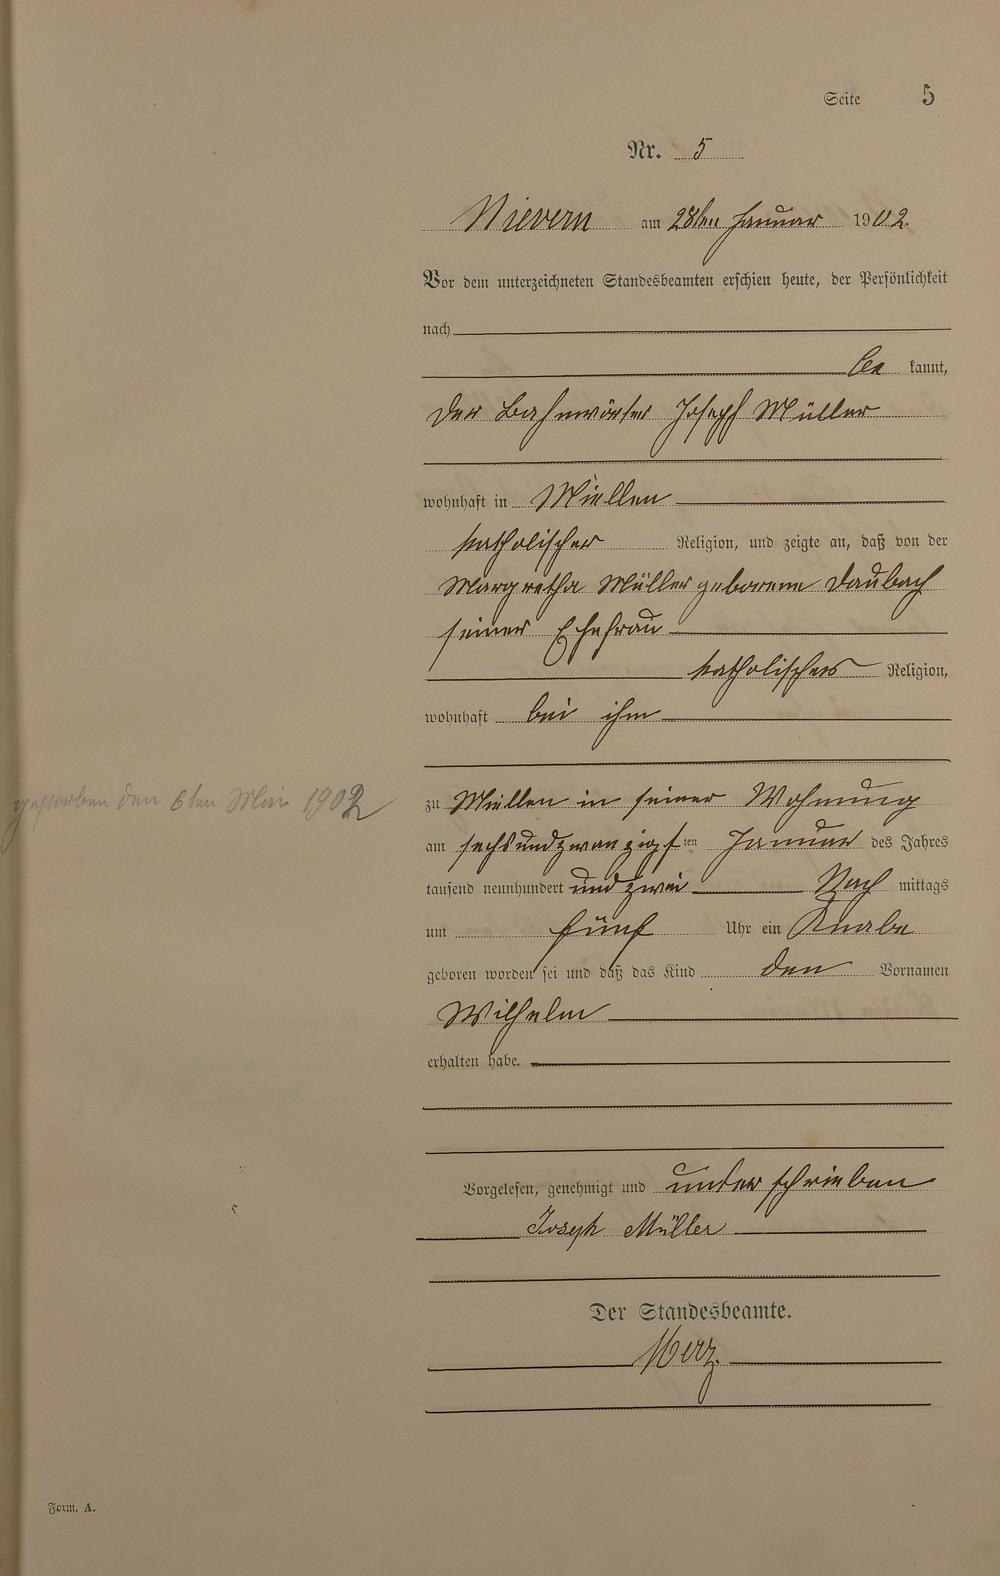 Seite 5
Nr. 5
Nievern am 28ten Januar 1902.
Vor dem unterzeichneten Standesbeamten erschien heute, der Persönlichkeit
nach
be kannt,
der Bahnwärter Joseph Müller
wohnhaft in Miellen
katholischer Religion, und zeigte an, daß von der
Margretha Müller geborene Daubach
seiner Ehefrau
katholischer Religion,
wohnhaft bei ihm
gestorben den 6ten Mai 1902
zu Miellen in seiner Wohnung
am sechsundzwanzigsten Januar des Jahres
tausend neunhundert und zwei Nach mittags
um fünf Uhr ein Knabe
geboren worden sei und daß das Kind den Vornamen
Wilhelm
erhalten habe.
Vorgelesen, genehmigt und unterschrieben
Joseph Müller
Der Standesbeamte.
Merz.
Form. A.